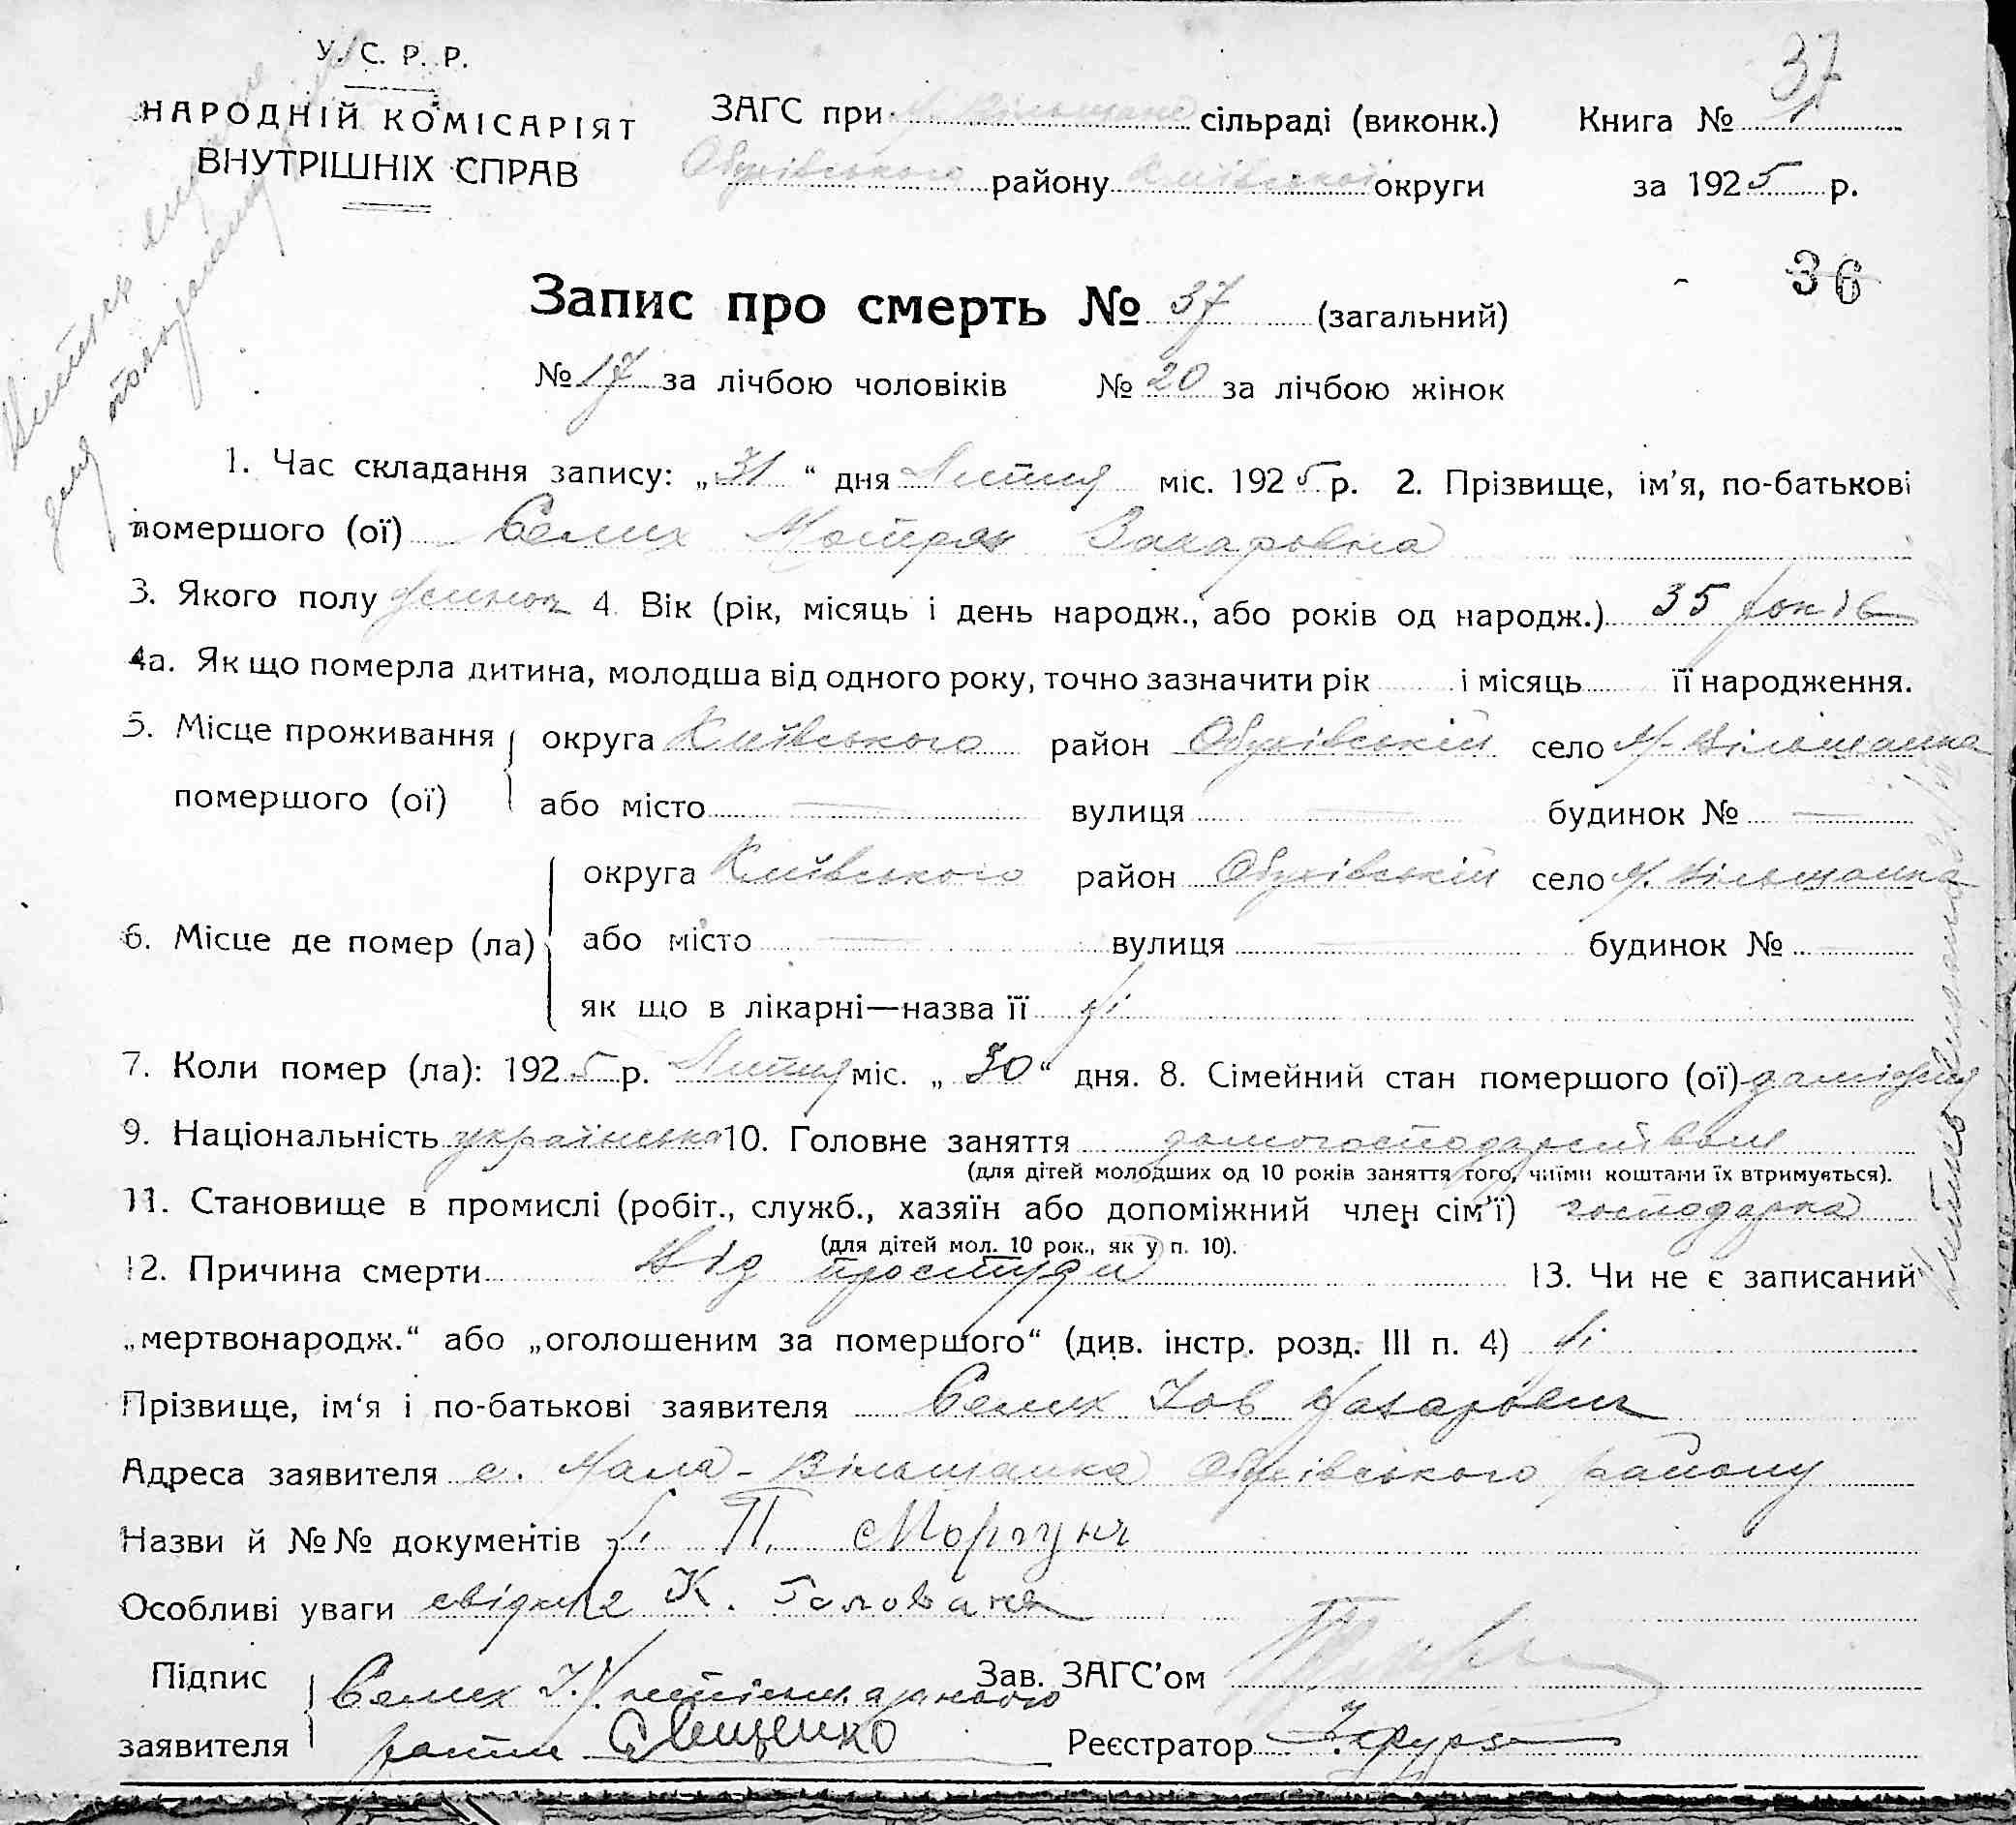 У. С. Р. Р.
НАРОДНІЙ КОМІСАРІЯТ
ВНУТРІШНІХ СПРАВ
ЗАГС при М. Вільшане сільраді (виконк.)
Обухівського району Київської округи
Книга №
37
за 1925 р.
36
Запис про смерть № 37 (загальний)
№ 17 за лічбою чоловіків № 20 за лічбою жінок
1. Час складання запису: „31“ дня Липня міс. 1925 р. 2. Прізвище, ім'я, по-батькові
помершого (ої) Селих Мотря Захаровна
3. Якого полу 4. Вік (рік, місяць і день народж., або років од народж.) 35 років
4а. Як що померла дитина, молодша від одного року, точно зазначити рік і місяць її народження.
5. Місце проживання округа Київського район Обухівській село М-Вільшанка
помершого (ої) або місто — вулиця — будинок № —
округа Київського район Обухівській село М. Вільшанка
6. Місце де помер (ла) або місто — вулиця — будинок № —
як що в лікарні—назва її Ні
7. Коли помер (ла): 1925 р. Липня міс. „30“ дня. 8. Сімейний стан помершого (ої)
9. Національність українська 10. Головне заняття домогосподарством
(для дітей молодших од 10 років заняття того, чиїми коштами їх втримується).
11. Становище в промислі (робіт., служб., хазяїн або допоміжний член сім'ї) господарка
(для дітей мол. 10 рок., як у п. 10).
12. Причина смерти Від простуди 13. Чи не є записаний
„мертвонародж.“ або „оголошеним за помершого“ (див. інстр. розд. III п. 4) Ні
Прізвище, ім'я і по-батькові заявителя Селих Іов Назарович
Адреса заявителя с. Мала-Вільшанка Обухівського району
Назви й №№ документів П. Моргунъ
Особливі уваги свідки 2 К. Голована
Підпис Селих І. Н. неписьменного
заявителя Лещенко
Зав. ЗАГС'ом
Реєстратор